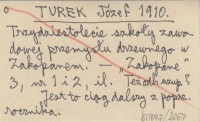 o TUREK Józef 1910.
Trzydziestolecie szkoły zawo-
dowej przemysłu drzewnego w
Zakopanem. — „Zakopane"
3, nr 1 i 2, il. Też odb. wup?
Jest to ciąg dalszy z poprz.
rocznika.